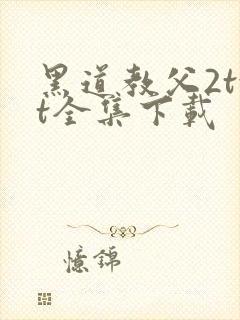 黑道教父2t
t全集下载
憶錦